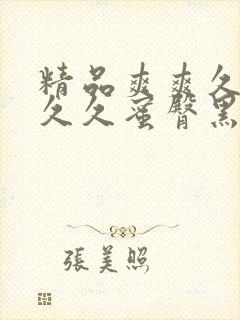 精品爽爽久
久久蜜臀黑
張美照